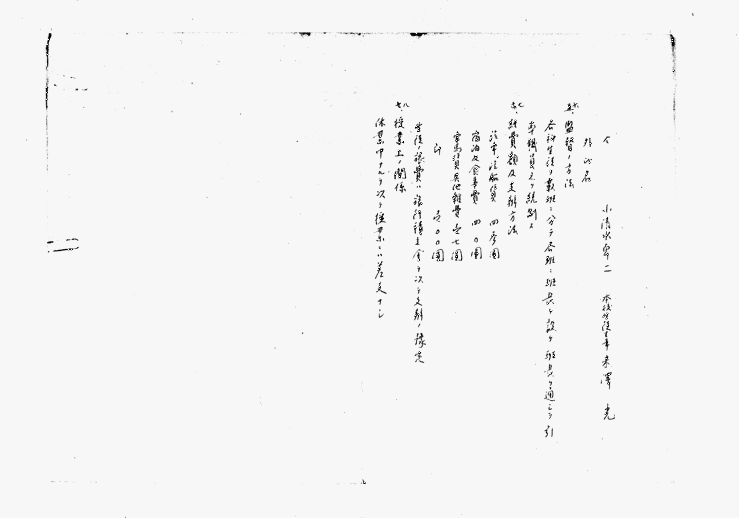 仝 小清水卓二 本校生徒主事 米澤 光
外此名
六、監督ノ方法
各科生徒ヲ数班ニ分テ各班ニ班長ヲ設ケ班長ヲ通シテ引
率職員之ヲ統制ス
七、経費額及支辦方法
汽車、汽船賃 四参圓
宿泊及食事費 四〇圓
車馬賃其他雑費 壱七圓
計 壱〇〇圓
生徒ノ旅費ハ旅行積立金ヲ以テ支辦ノ豫定
八、授業上ノ関係
休業中ナルヲ以テ授業ニハ差支ナシ